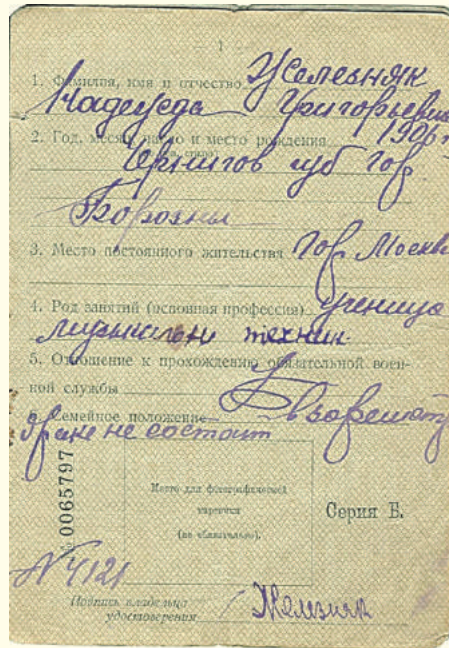 — 1 —
1. Фамилия, имя и отчество Желесняк
Надежда Григорьевна
2. Год, месяц, число и место рождения 1906 г
Чернигов губ гор
Борозны
3. Место постоянного жительства гор. Москва
4. Род занятий (основная профессия) ученица
техник
5. Отношение к прохождению обязательной воен-
ной службы
6. Семейное положение
браке не состоит
0065797
Место для фотографической
карточки
(не обязательно).
Серия Б.
№ 4121
Подпись владельца
удостоверения Железняк